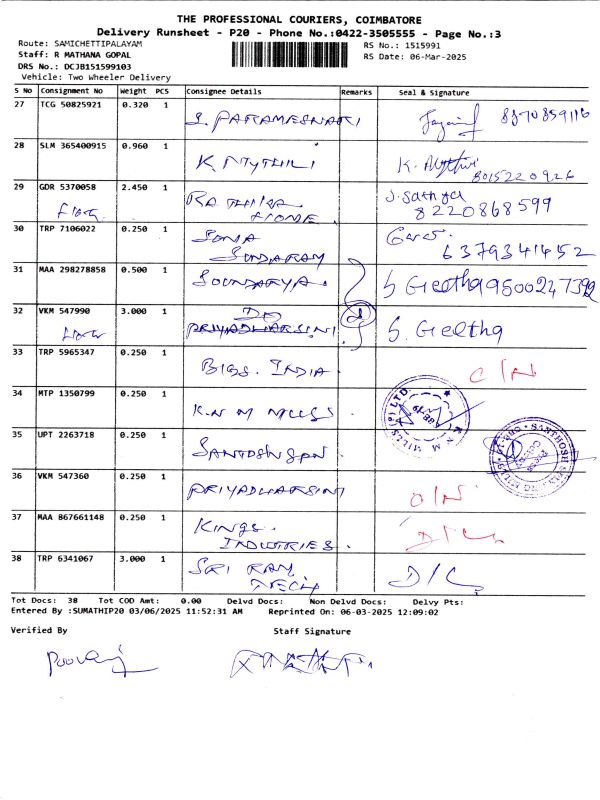 THE PROFESSIONAL COURIERS, COIMBATORE
Delivery Runsheet - P20 - Phone No.:0422-3505555 - Page No.:3
Route: SAMICHETTIPALAYAM
RS No.: 1515991
Staff: R MATHANA GOPAL
RS Date: 06-Mar-2025
DRS No.: DCJB151599103
Vehicle: Two Wheeler Delivery
S No Consignment No Weight PCS Consignee Details Remarks Seal & Signature
27 TCG 50825921 0.320 1 8370859116
28 SLM 365400915 0.960 1 K MYTHILI K. 8015220926
29 GDR 5370058 2.450 1 J. Sathya
HOME 8220868599
30 TRP 7106022 0.250 1 SONA
SUNDARAM 6379341452
31 MAA 298278858 0.500 1 SOUNDARYA. S Geetha
32 VKM 547990 3.000 1 DO
PRIYADHARSINI S. Geetha
33 TRP 5965347 0.250 1 BIGS. INDIA
34 MTP 1350799 0.250 1 K.N M MILLS
K.N.M. MILLS (P) LTD.
35 UPT 2263718 0.250 1 SANTOSH SPN
36 VKM 547360 0.250 1 PRIYADHARSINI O/N
37 MAA 867661148 0.250 1 KINGS.
INDUSTRIES. D/L
38 TRP 6341067 3.000 1 SRI RAM
TECH D/L
Tot Docs: 38 Tot COD Amt: 0.00 Delvd Docs: Non Delvd Docs: Delvy Pts:
Entered By :SUMATHIP20 03/06/2025 11:52:31 AM Reprinted On: 06-03-2025 12:09:02
Verified By Staff Signature